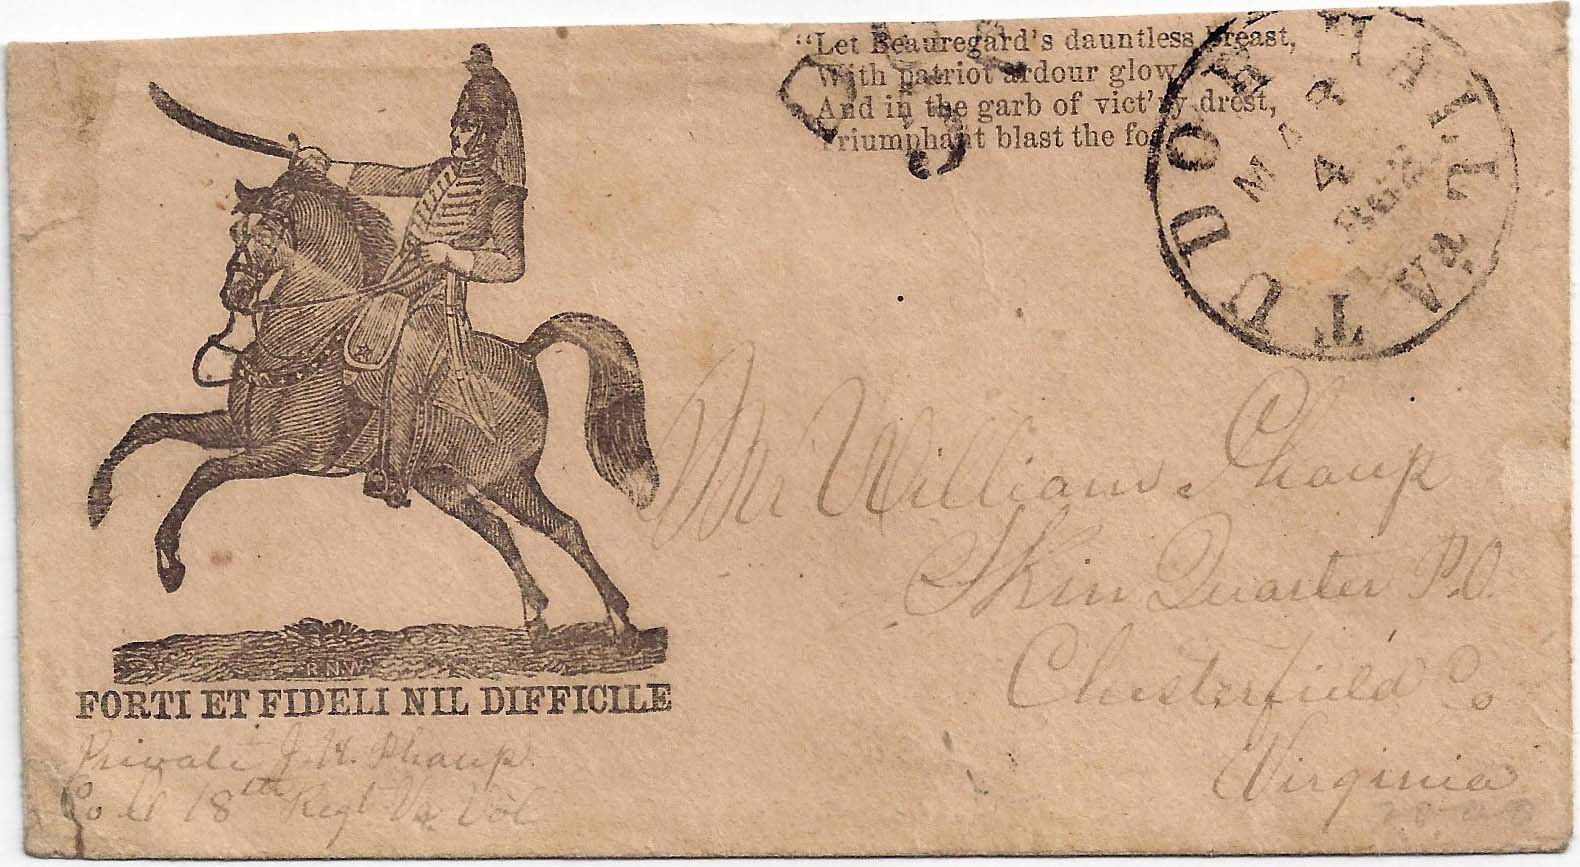 "Let Beauregard's dauntless breast,
With patriot ardour glow,
And in the garb of vict'ry drest,
Triumphant blast the foe
TUDOR HALL Va.
MAR
4
1862
R.N.W.
FORTI ET FIDELI NIL DIFFICILE
Mr William Phaup
Skin Quarter P.O.
Chesterfield Co
Virginia
Private J. H. Phaup
Co 18th Regt Va Vol